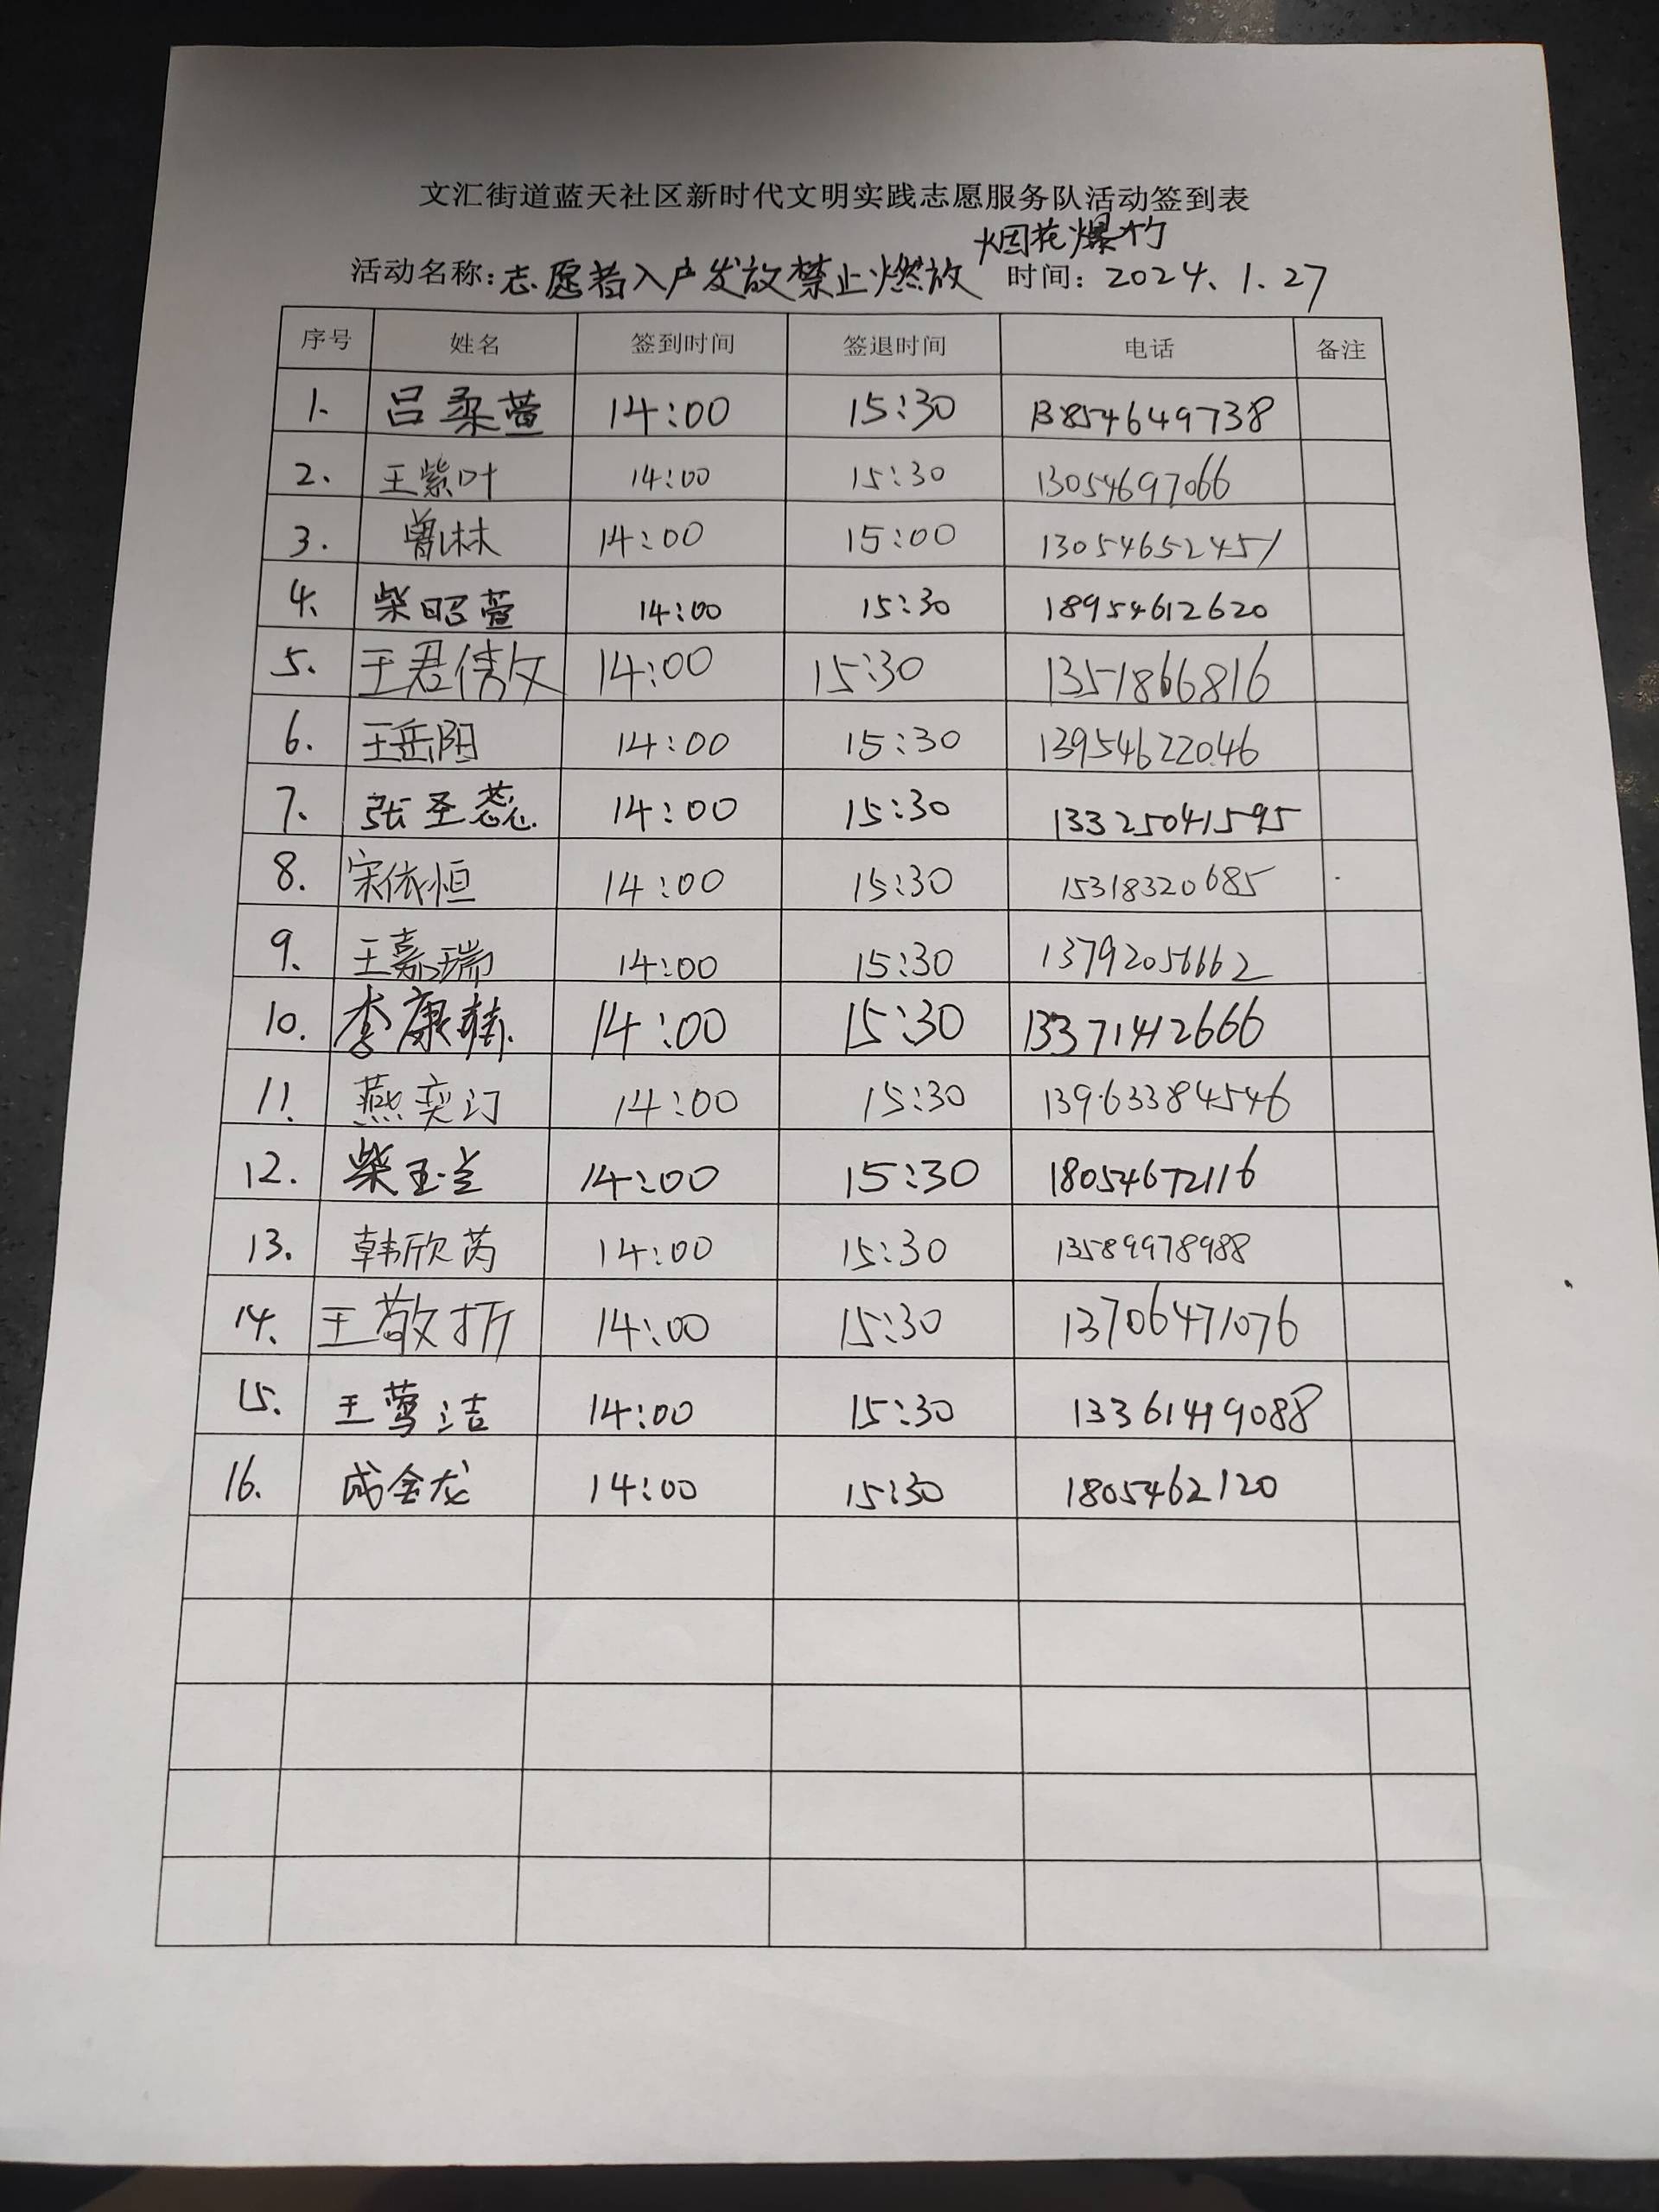 文汇街道蓝天社区新时代文明实践志愿服务队活动签到表
烟花爆竹
活动名称:志愿者入户发放禁止燃放 时间: 2024、1.27
序号 姓名 签到时间 签退时间 电话 备注
1. 吕柔萱 14:00 15:30 13854649738
2. 王紫叶 14:00 15:30 13054697066
3. 曾林林 14:00 15:00 13054652451
4. 柴昭萱 14:00 15:30 18954612620
5. 王君倩文 14:00 15:30 1351866816
6. 王岳阳 14:00 15:30 13954622046
7. 张圣蕊 14:00 15:30 13325041595
8. 宋依恒 14:00 15:30 15318320685
9. 王嘉瑞 14:00 15:30 13792056662
10. 李康 14:00 15:30 13371412666
11. 燕奕汀 14:00 15:30 13963384546
12. 柴玉兰 14:00 15:30 18054672116
13. 韩欣芮 14:00 15:30 13589978988
14. 王敬圻 14:00 15:30 13706471076
15. 王莺洁 14:00 15:30 13361419088
16. 成金龙 14:00 15:30 1805462120